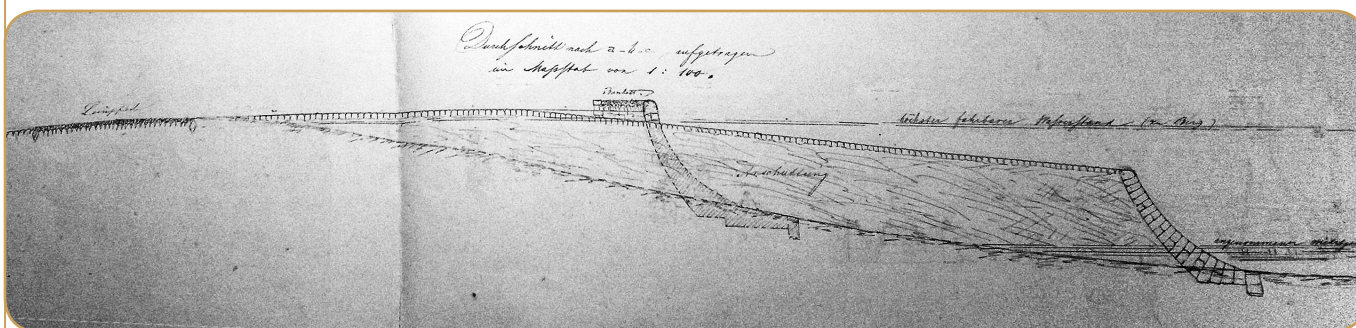 Durchschnitt nach a-b-c aufgetragen
im Maßstab von 1: 100.
Leinpfad
höchster fahrbarer Wasserstand
Anschüttung
angenommener